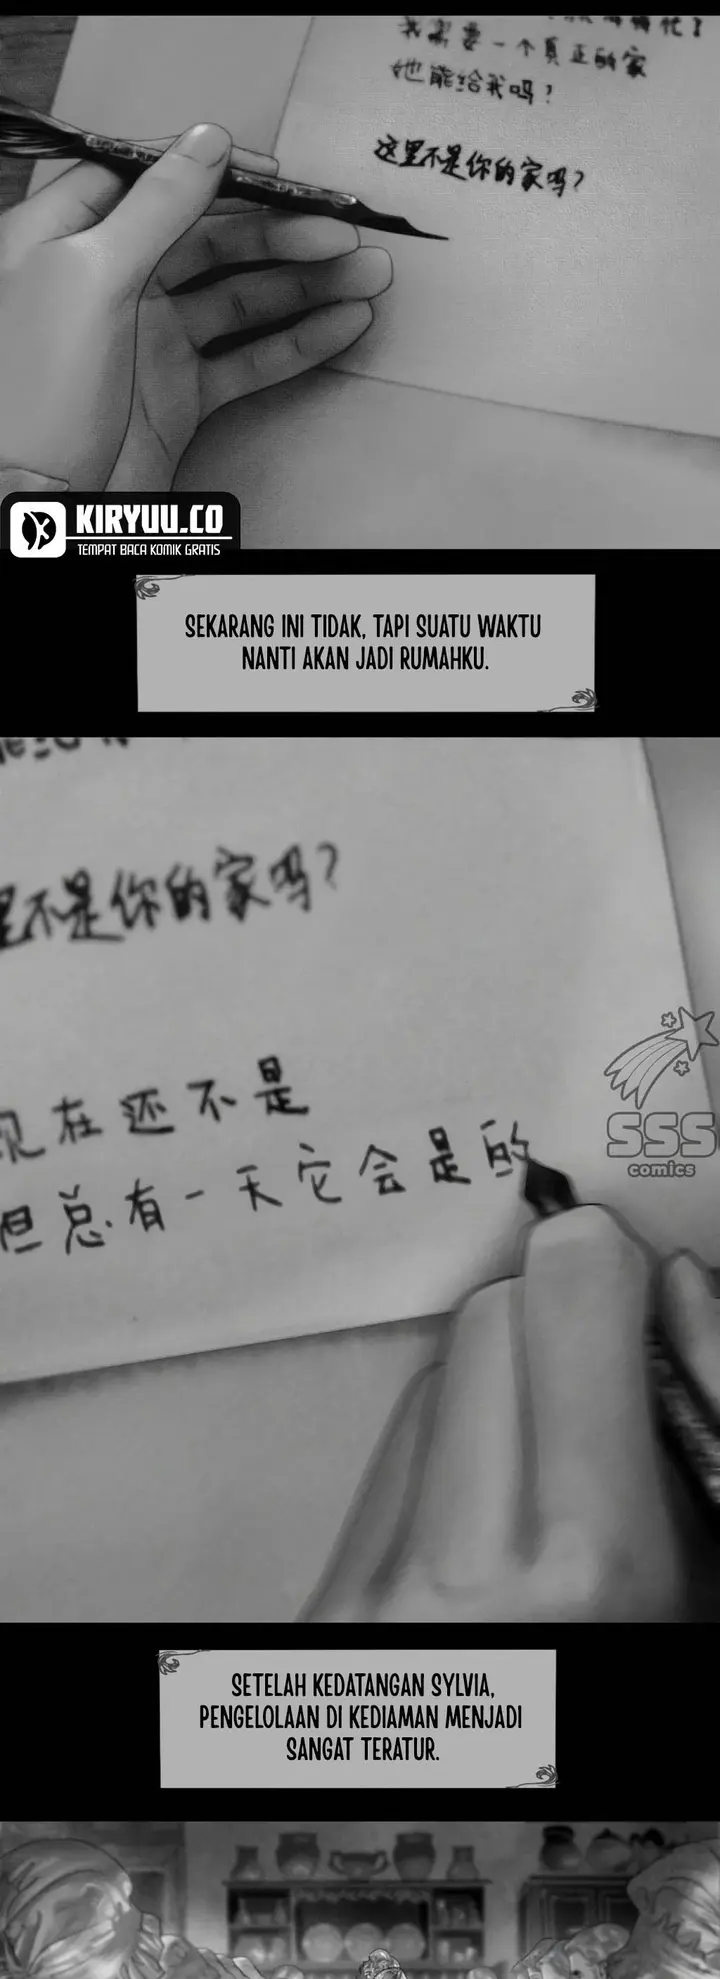 我需要一个真正的家
她能给我吗?
这里不是你的家吗?
KIRYUU.CO
TEMPAT BACA KOMIK GRATIS
SEKARANG INI TIDAK, TAPI SUATU WAKTU
NANTI AKAN JADI RUMAHKU.
里不是你的家吗?
现在还不是
但总有一天它会是的
SSS
comics
SETELAH KEDATANGAN SYLVIA,
PENGELOLAAN DI KEDIAMAN MENJADI
SANGAT TERATUR.